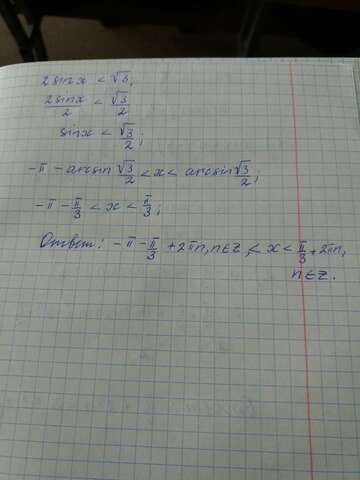 2sinx < √3,
2sinx/2 < √3/2
sinx < √3/2;
-π - arcsin √3/2 < x < arcsin √3/2;
-π - π/3 < x < π/3;
Ответ: -π - π/3 + 2πn, n∈Z, < x < π/3 + 2πn,
n∈Z.